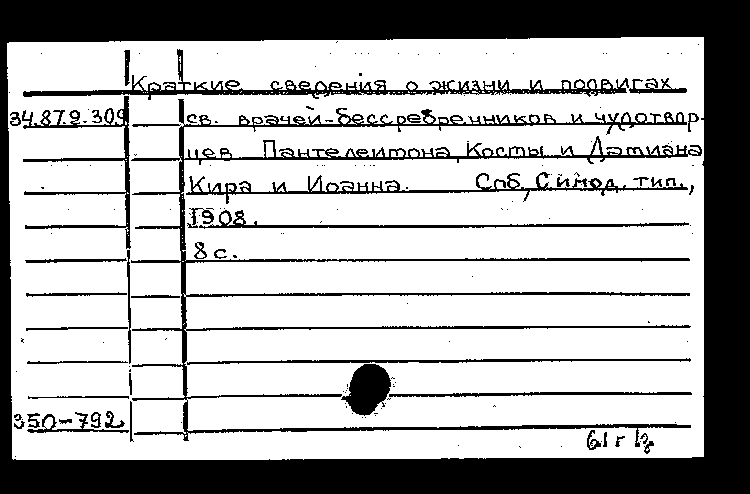 Краткие сведения о жизни и подвигах
34.87.9.309 св. врачей-бессребренников и чудотвор-
цев Пантелеимона, Косты и Дамиана
Кира и Иоанна. Спб, Синод. тип.,
1908.
8 с.
350-792